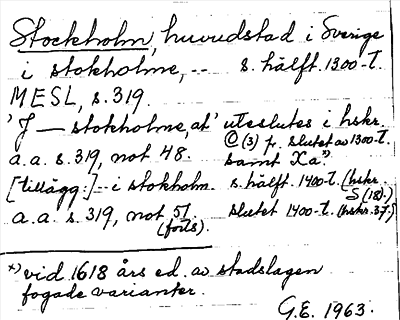 Stockholm, huvudstad i Sverige
i stokholme, -- s. hälft. 1300-t.
MESL, s. 319.
'J — stokholme, at' uteslutes i hskr.
C (3) fr. slutet av 1300-t.
a.a. s. 319, not 48. samt Xa.*)
[tillägg:] -- i stokholm. s. hälft. 1400-t. (hskr.
S (18).)
a.a. s. 319, not 51 slutet 1400-t. (hskr. 37.)
(forts).
*) vid 1618 års ed. av stadslagen
fogade varianter.
G.E. 1963.